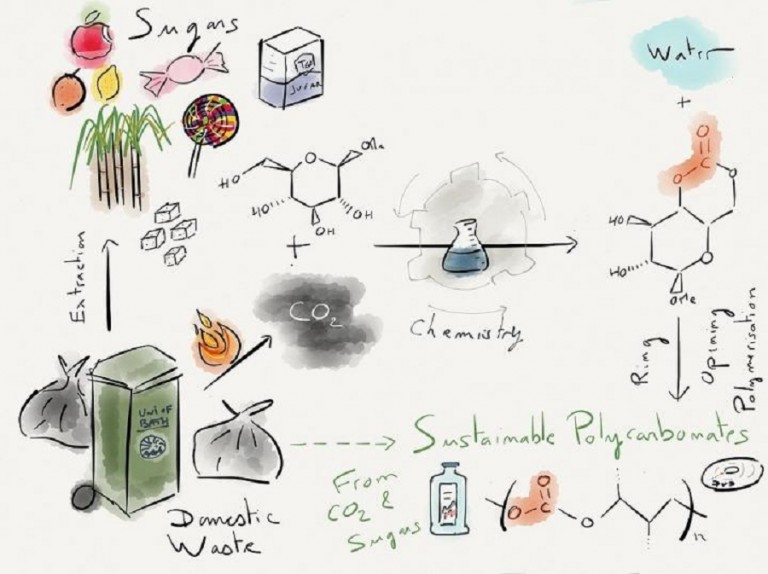 Sugars
SUGAR
OMe
HO
HO
OH
OH
+
Extraction
CO2
Chemistry
Water
+
O
C
O
O
HO
HO
O
OMe
Ring
Opining
Polymerisation
UNI OF
BATH
Domestic
Waste
Sustainable Polycarbonates
From
CO2 &
Sugars
O
O
C
O
n